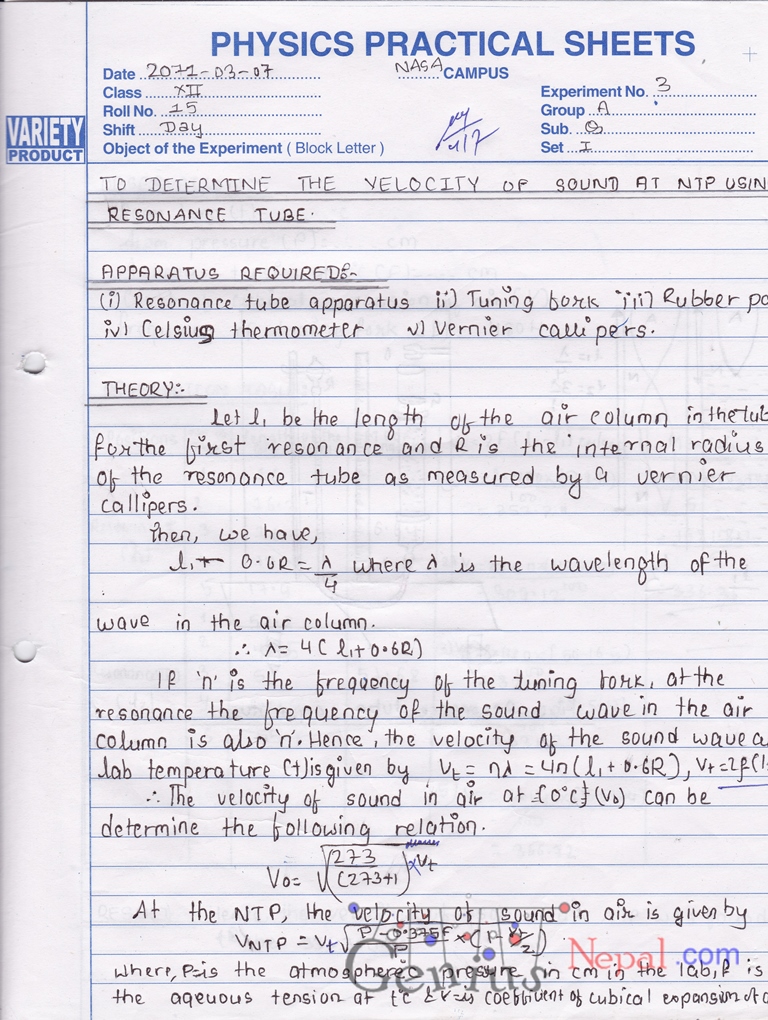 PHYSICS PRACTICAL SHEETS
Date 2071-03-07 NASA CAMPUS
Class XII Experiment No. 3
Roll No. 15 Group A
Shift Day Sub.
VARIETY PRODUCT
Object of the Experiment ( Block Letter ) 4/7 Set I
TO DETERMINE THE VELOCITY OF SOUND AT NTP USIN
RESONANCE TUBE.
APPARATUS REQUIRED:-
(i) Resonance tube apparatus ii) Tuning fork iii) Rubber pa
iv) Celsius thermometer v) Vernier callipers.
THEORY:-
Let l₁ be the length of the air column in the tub
for the first resonance and R is the internal radius
of the resonance tube as measured by a vernier
callipers.
Then, we have,
l₁+ 0.6R = λ/4 where λ is the wavelength of the
wave in the air column.
∴ λ= 4( l₁+0.6R)
If 'n' is the frequency of the tuning fork, at the
resonance the frequency of the sound wave in the air
column is also 'n'. Hence, the velocity of the sound wave a
lab temperature (t) is given by Vt = nλ = 4n(l₁+0.6R), Vt=2f(l
∴ The velocity of sound in air at {0°c} (V₀) can be
determine the following relation.
V₀= √(273/(273+t)) × Vt
At the NTP, the velocity of sound in air is given by
V_NTP = Vt √
where, P is the atmospheric pressure in cm in the lab, f is
the aqeuous tension at t°c & r is coefficient of cubical expansion of a
Genius Nepal .com